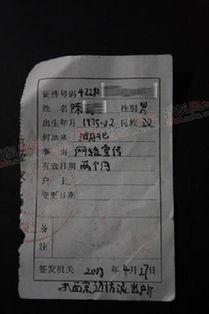 证件号码 4221
姓名 陈 性别 男
出生年月 1975.12 民族 汉
何地来 湖北
事由 网络宣传
有效日期 两个月
户主
变更日期
备
注
签发机关 2008年4月27日
边防派出所